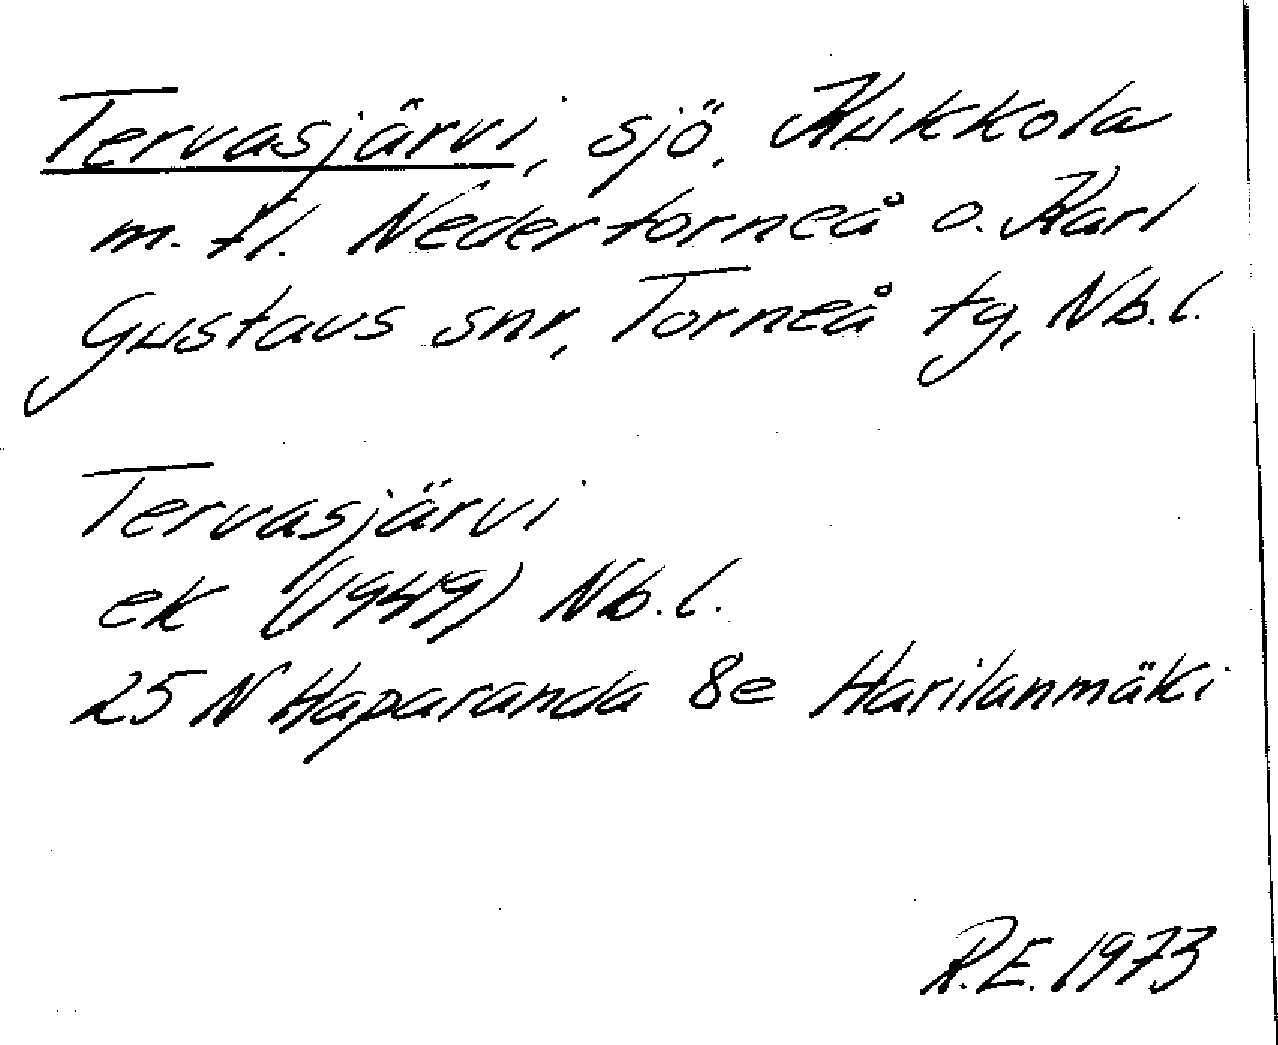 Tervasjärvi, sjö, Kukkola
m. fl. Nedertorneå o. Karl
Gustavs snr, Torneå tg, Nb. l.
Tervasjärvi
ek (1949) Nb. l.
25 N Haparanda 8e Harilanmäki
R.E. 1973